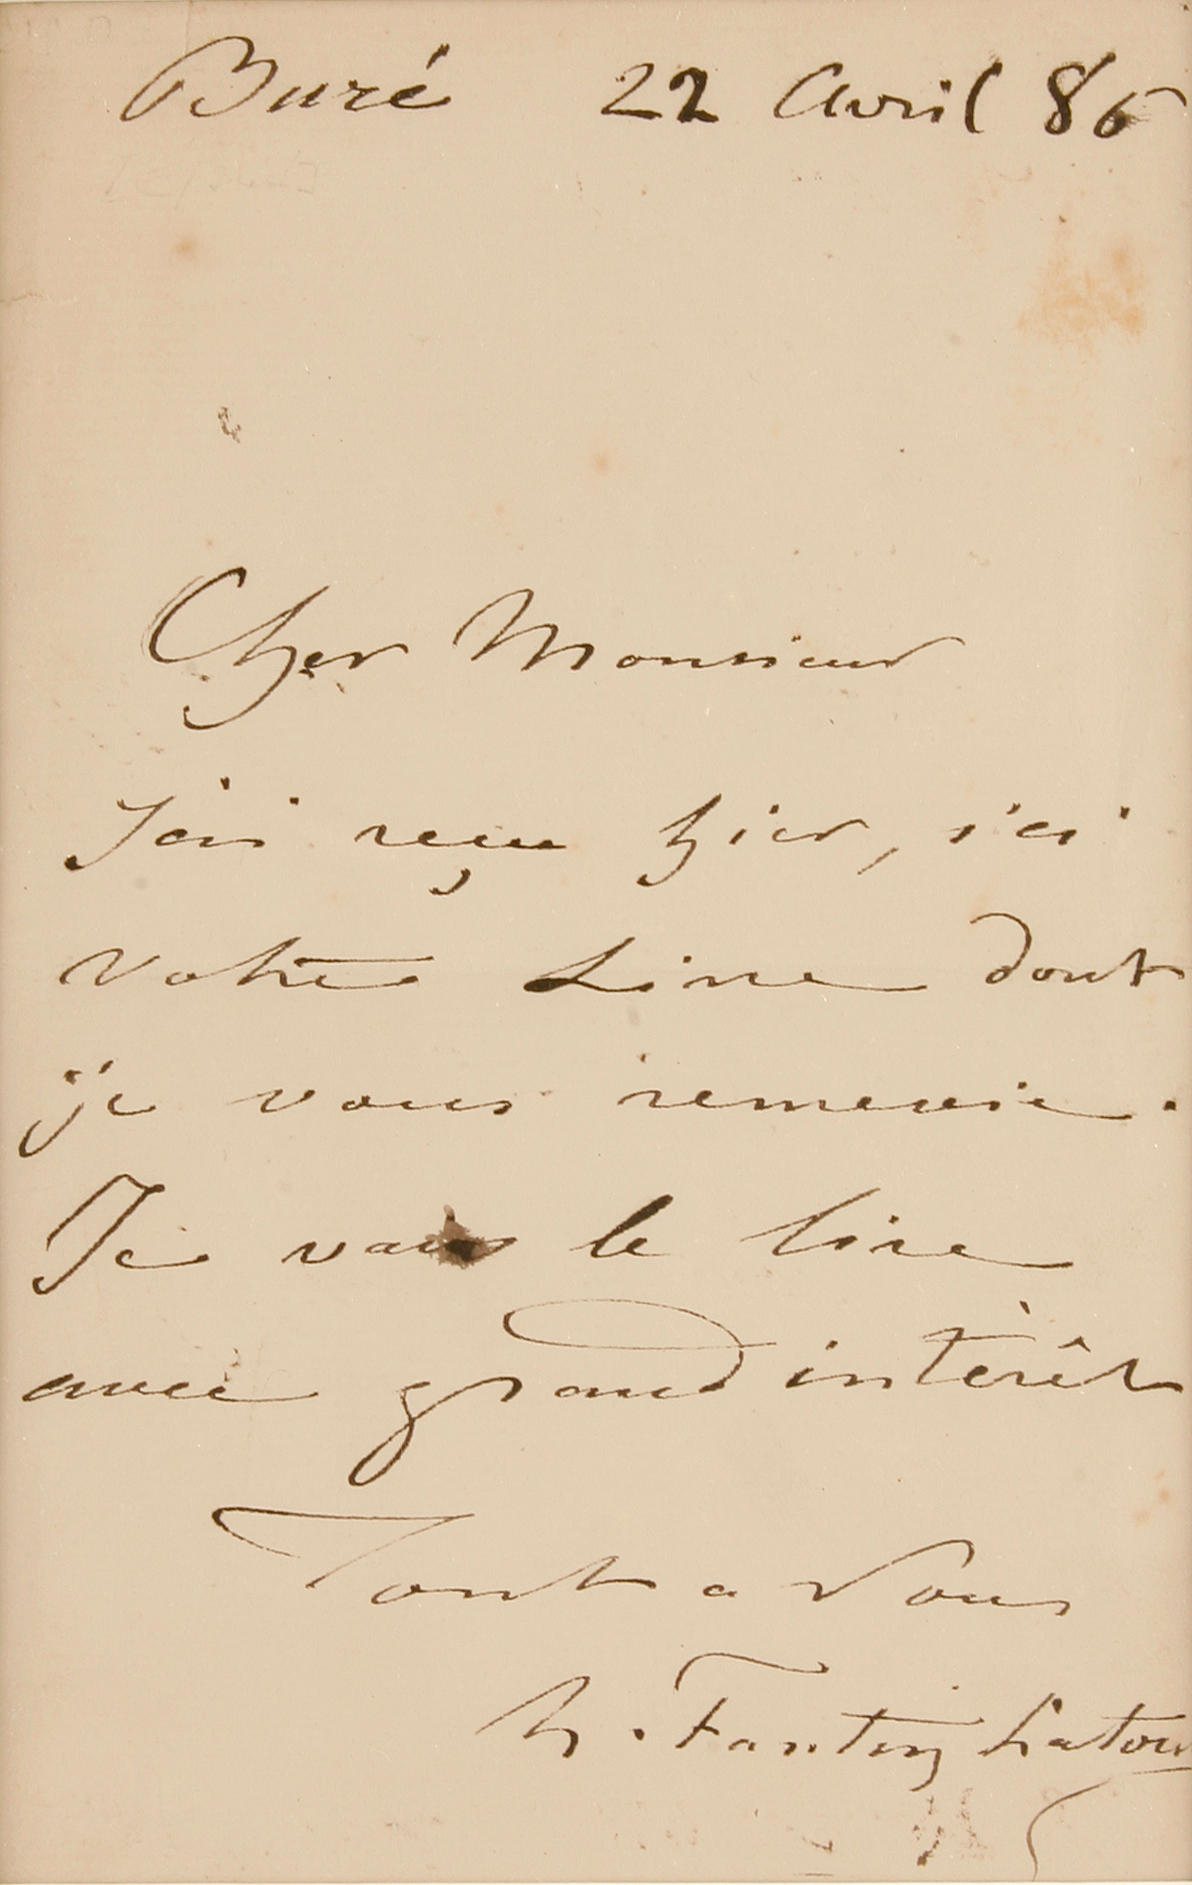 Buré 22 Avril 86
Cher Monsieur
J'ai reçu hier, ici
votre Livre dont
je vous remercie.
Je vais le lire
avec grand intérêt
Tout a vous
h. Fantin Latour